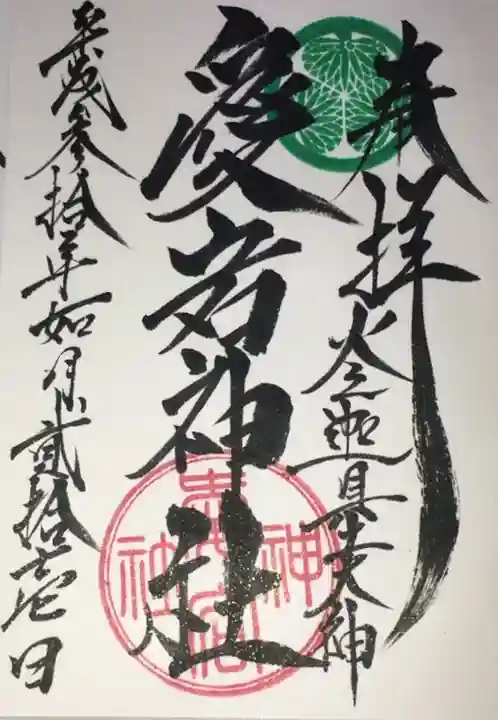 奉拝
火之迦具土大神
愛宕神社
愛宕神社
平成参拾年如月弐拾壱日